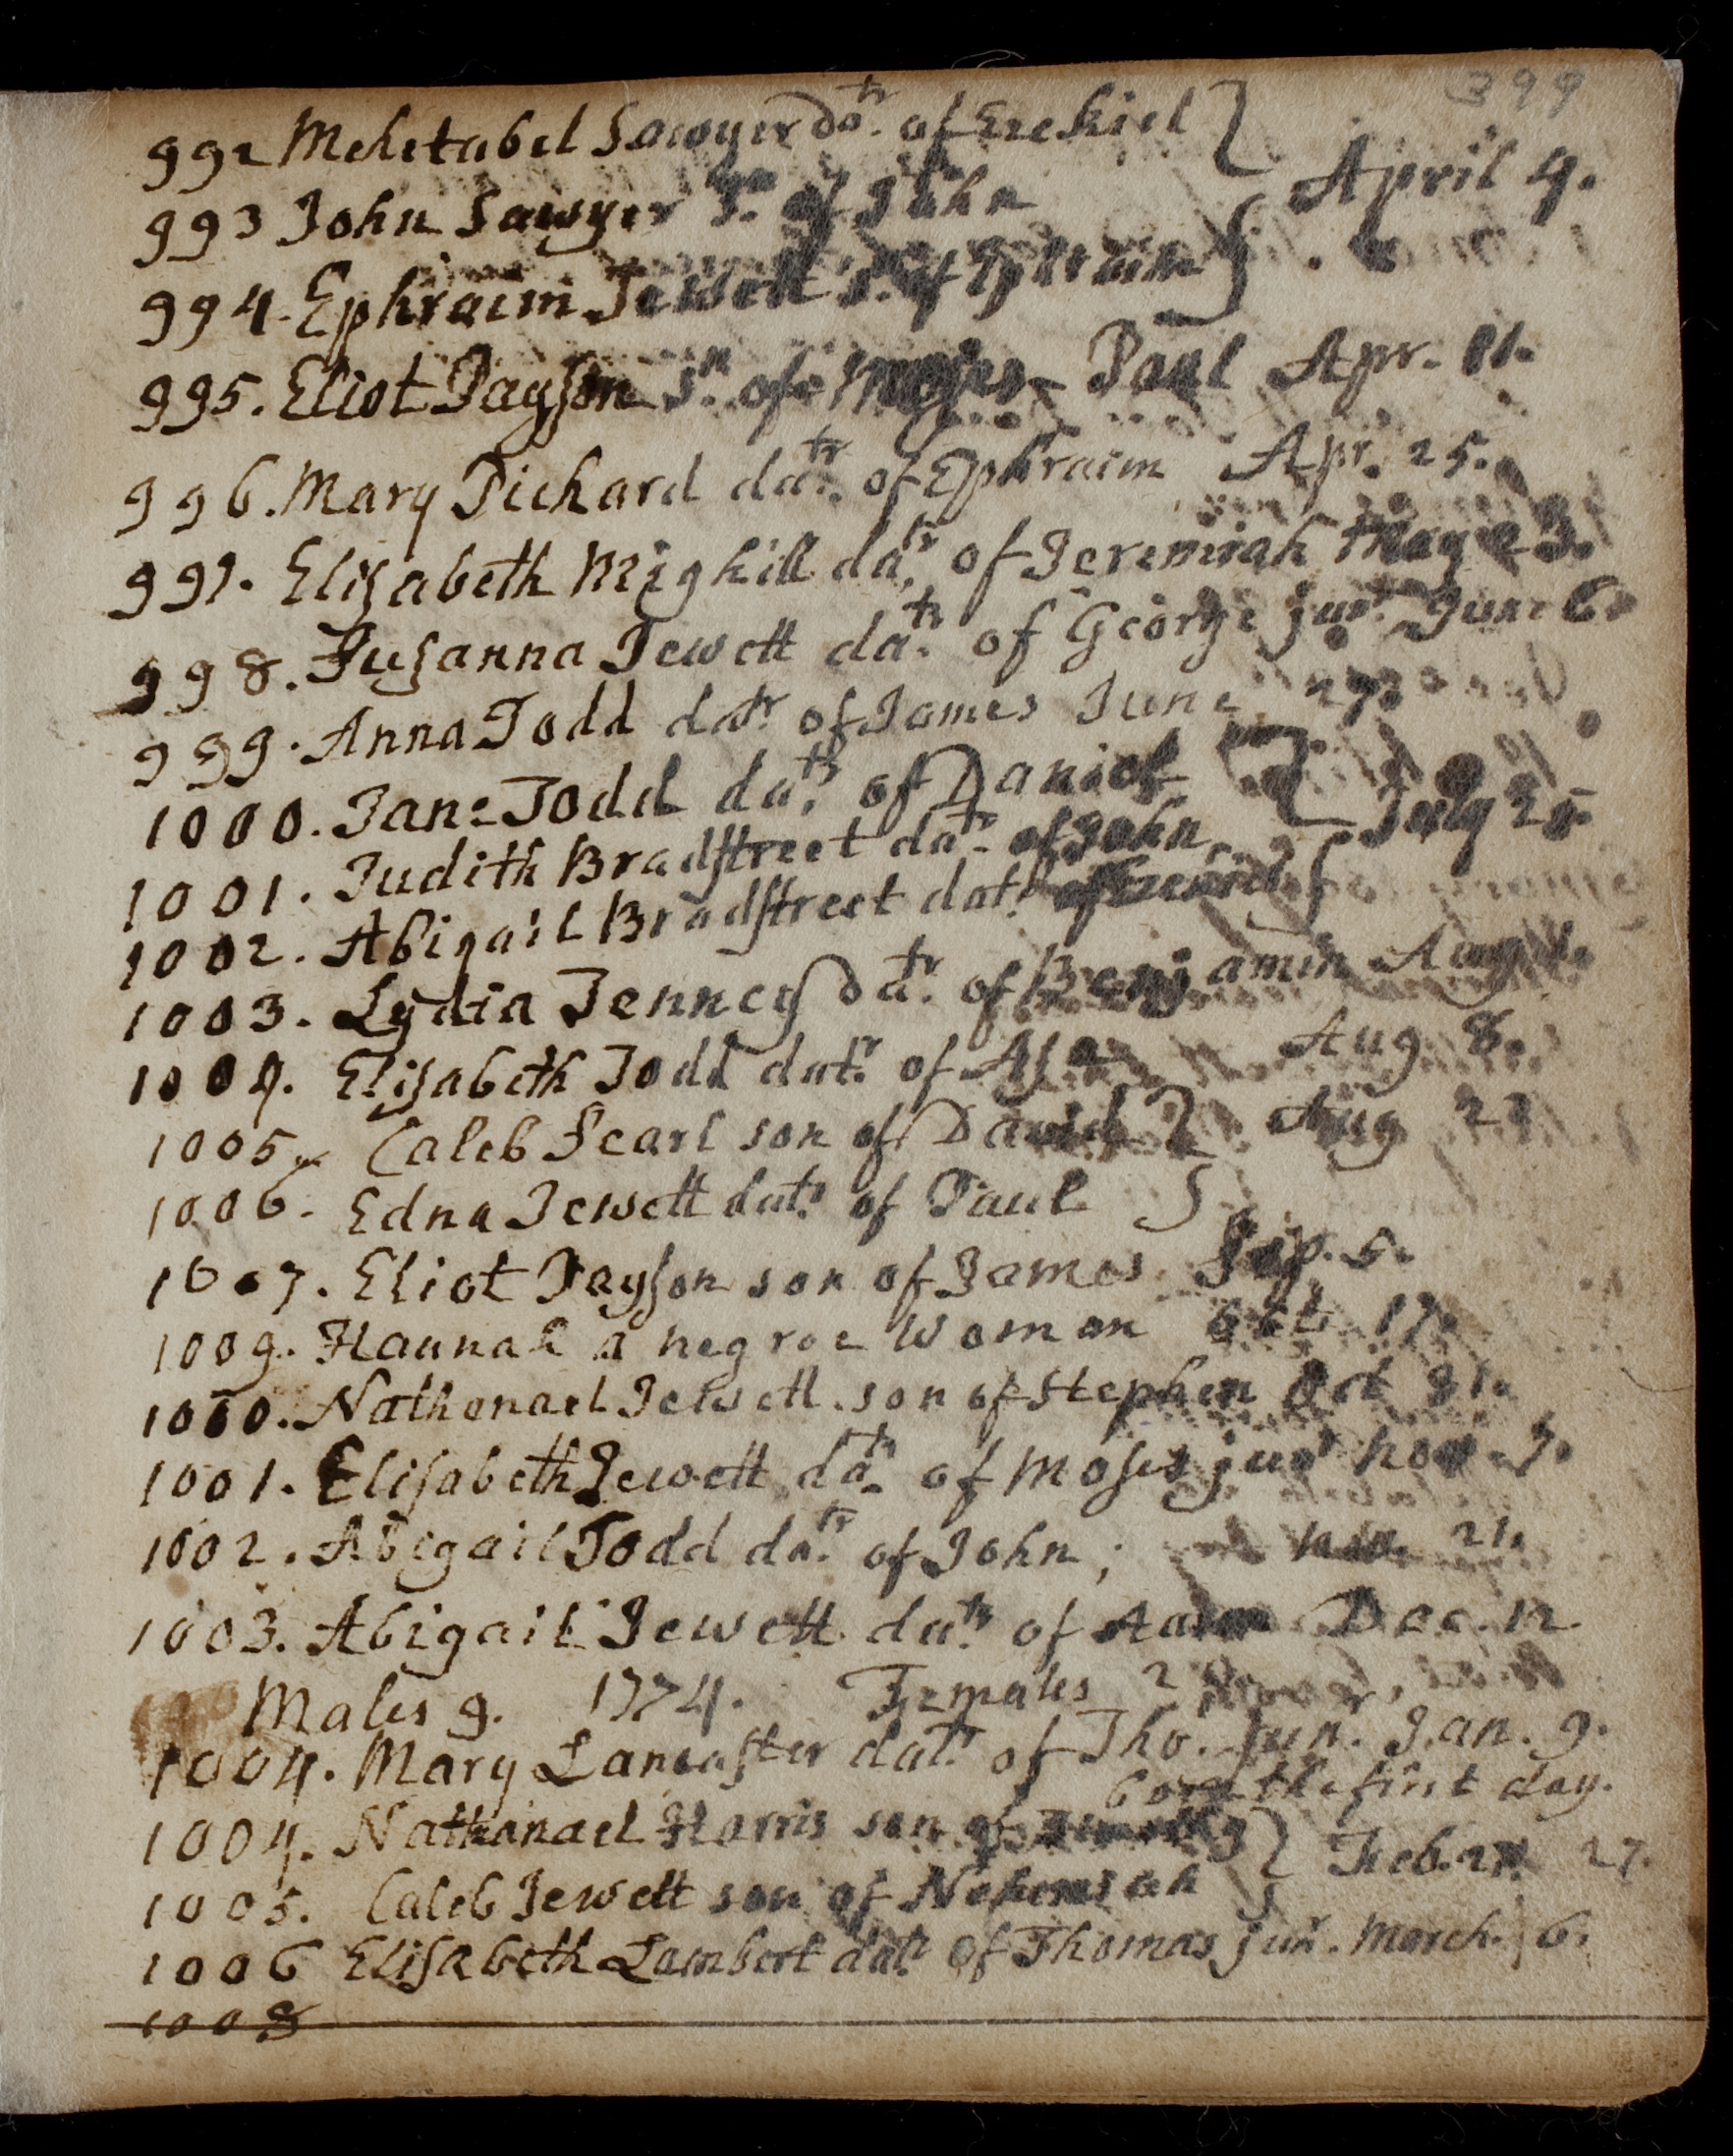 399
992 Mehetabel Sawyer Datr. of Ezekiel }
993 John Sawyer Sn. of John April 4.
994. Ephraim Jewett Sn. of Ephraim }
995. Eliot Payson Sn. of Moses Paul Apr. 11.
996. Mary Pickard datr. of Ephraim Apr. 25.
997. Elisabeth Mighill datr. of Jeremiah May 23.
998. Susanna Jewett datr. of George junr. June 6.
999. Anna Todd datr. of James June 27.
1000. Jane Todd datr. of Daniel }
1001. Judith Bradstreet datr. of John July 25.
1002. Abigail Bradstreet datr. of Ezekiel }
1003. Lydia Tenney Datr. of Benjamin Aug 1.
1004. Elisabeth Todd datr. of Asa Aug. 8.
1005. Caleb Searl son of David } Aug 22
1006. Edna Jewett datr. of Paul }
1007. Eliot Payson son of James Sep. 5.
1009. Hannah a negroe Woman Oct. 17.
1000. Nathanael Jewett son of Stephen Oct 31.
1001. Elisabeth Jewett datr. of Moses junr nov. 7.
1002. Abigail Todd datr. of John; nov. 21.
1003. Abigail Jewett datr. of Aaron Dec. 12.
Males 9. 1774. Females
1004. Mary Lancaster datr. of Tho. jun. Jan. 9.
born the first day.
1004. Nathanael Harris son of Timothy }
1005. Caleb Jewett son of Nehemiah } Feb. 27. 27.
1006 Elisabeth Lambert datr. of Thomas junr. March. 6.
1008